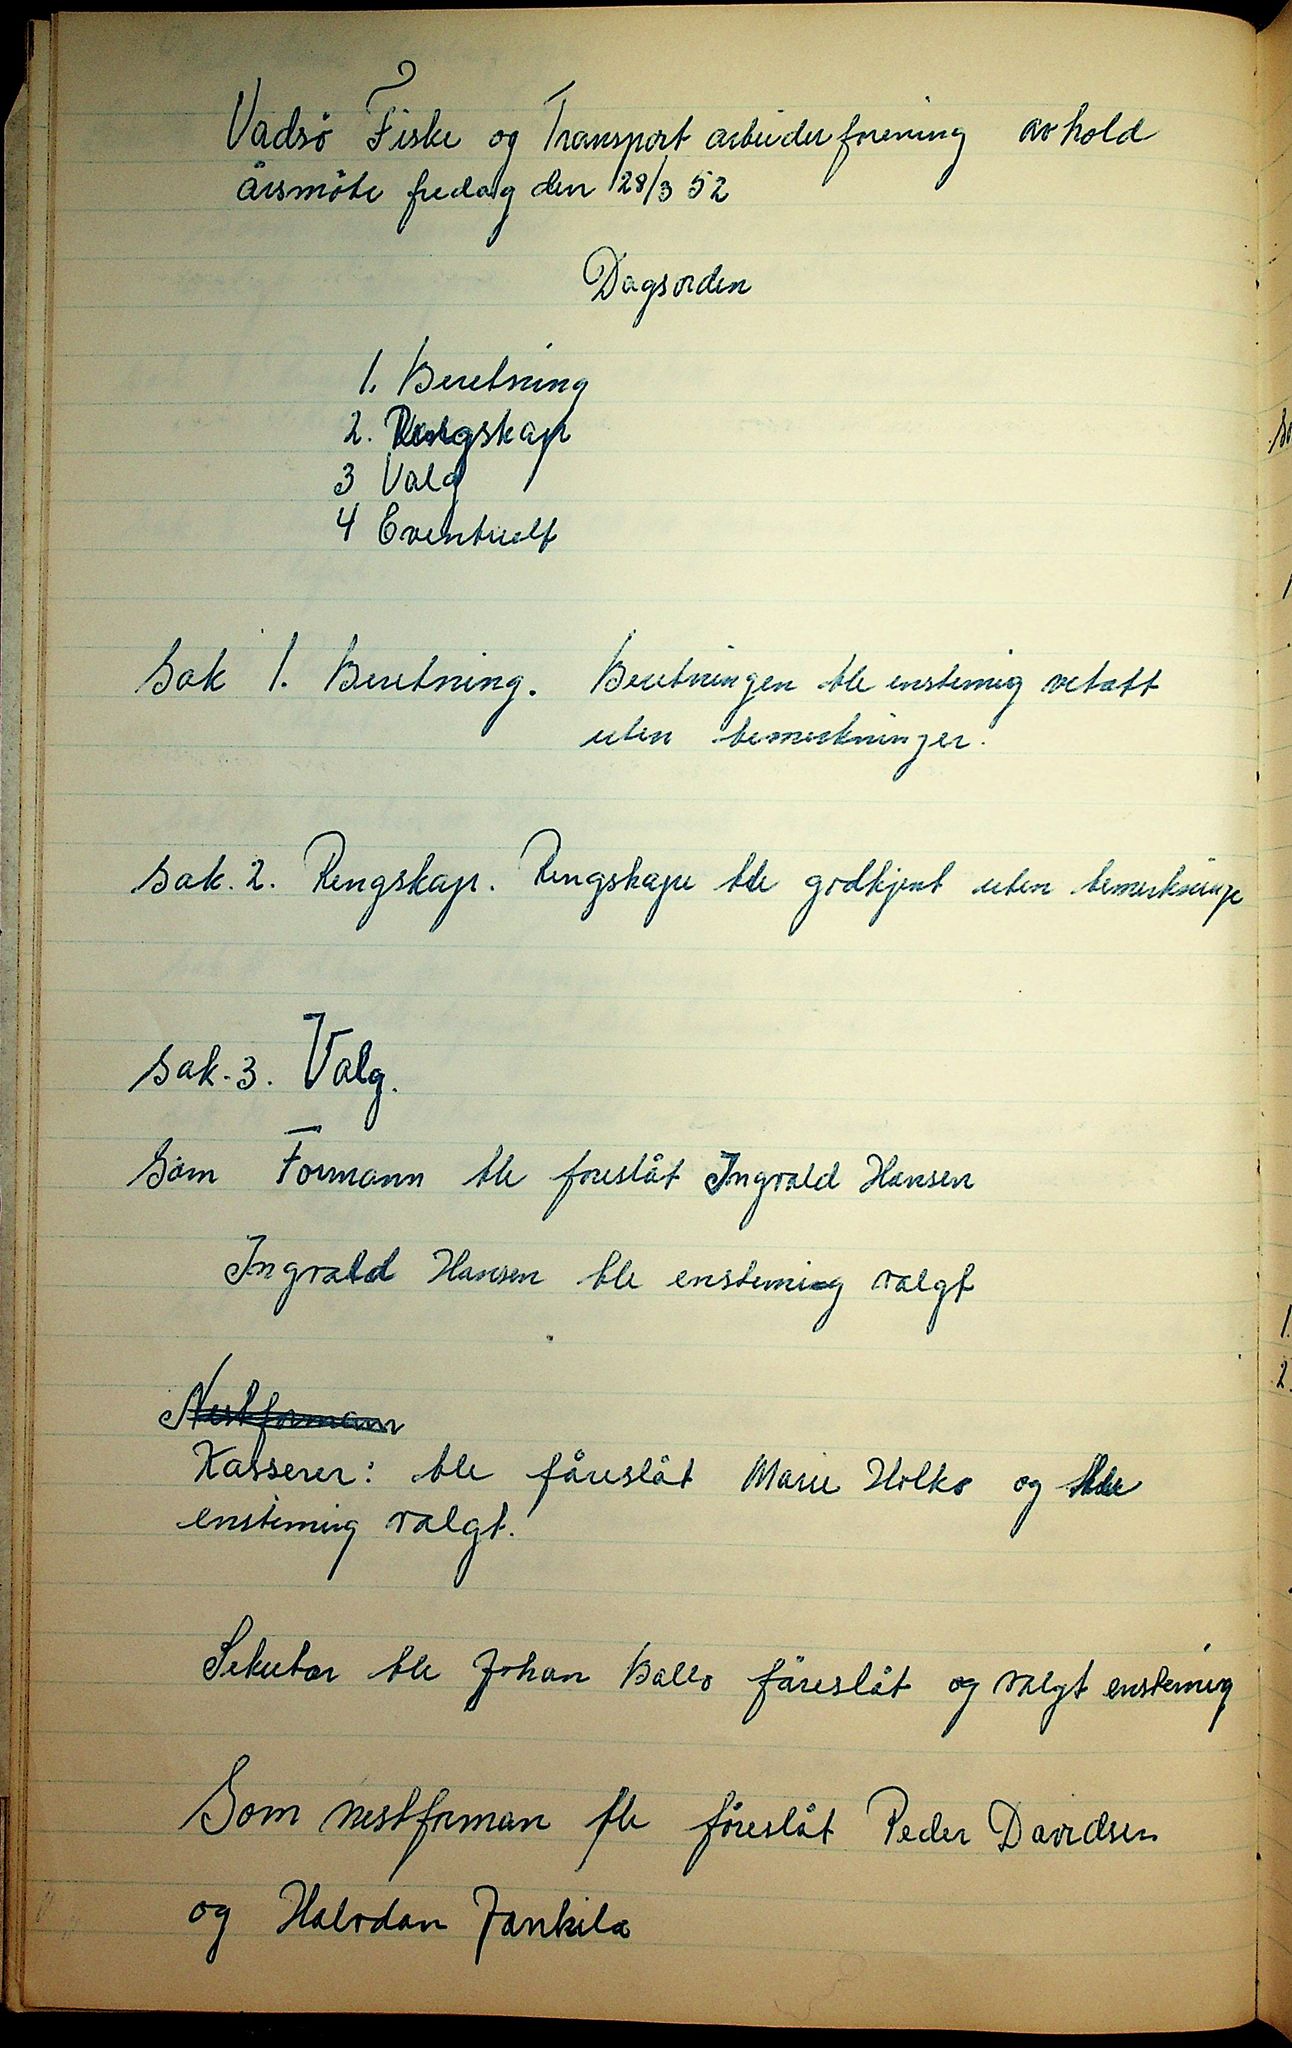 Vadsö Fiske og Transport arbeiderforening avhold
årsmöte fredag den 28/3 52
Dagsorden
1. Beretning
2. Rengskap
3 Valg
4 Eventuelt
Sak 1. Beretning. Beretningen ble enstemig vetatt
uten bemerkninger.
Sak. 2. Rengskap. Rengskape ble godkjent uten bemerkninge
Sak. 3. Valg.
Som Formann ble foreslåt Ingvald Hansen
Ingvald Hansen ble enstemig valgt
Nestformann
Kasserer: ble fåreslåt Marie Holko og ble
enstemig valgt.
Sekretær ble Johan Ballo fåreslåt og valgt enstemig
Som nestforman ble föreslåt Peder Davidsen
og Halvdan Jankila